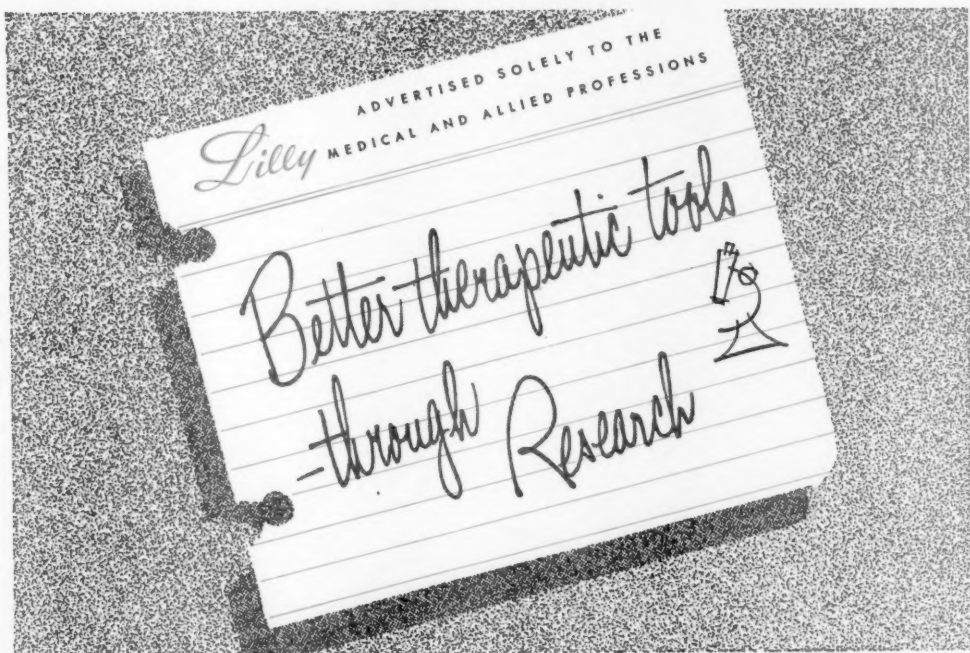 ADVERTISED SOLELY TO THE
Lilly MEDICAL AND ALLIED PROFESSIONS
Better therapeutic tools
-through Research